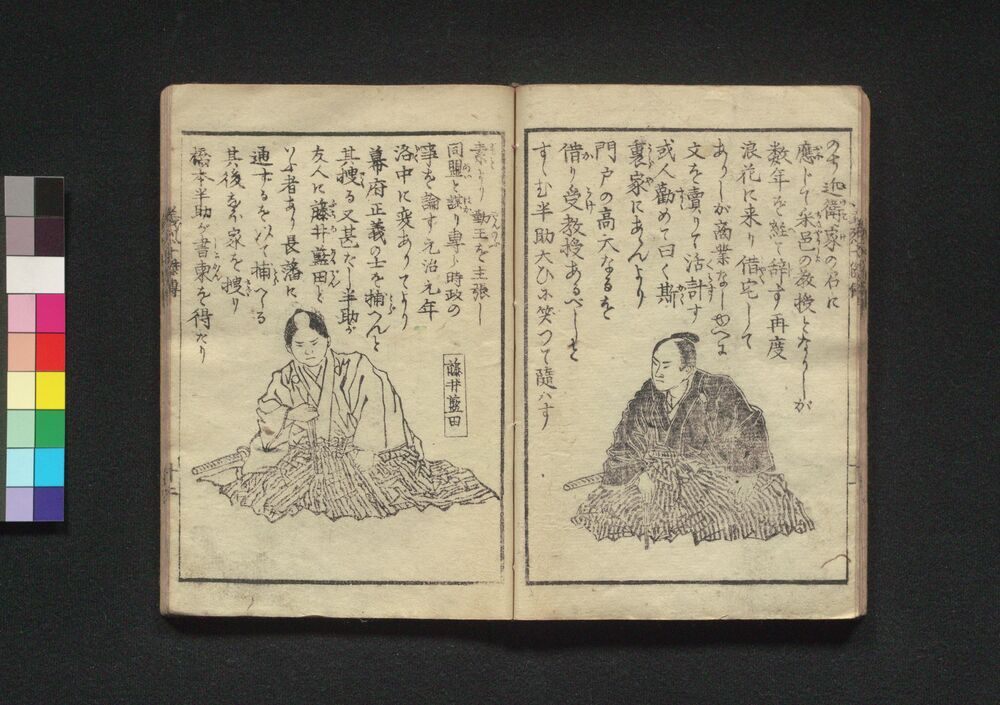 のち近衛家の召に
應じて采邑の教授となりしが
数年を経て辞す再度
浪花に来り借宅して
ありしが商業なし也へに
文を賣りて活計す
或人勸めて曰く斯
裏家にあんより
門戸の高大なるを
借り受教授あるべしと
すゝむ半助大ひに笑つて随はず
素より勤王を主張し
同盟と謀り専ら時政の
事を論ず元治元年
洛中に変ありてより
幕府正義の士を捕へんと
其捜る又甚だし半助が
友人に藤井藍田と
いふ者あり長藩に
通ずるを以て捕へらる
其後なほ家を捜り
橋本半助が書柬を得たり
藤井藍田